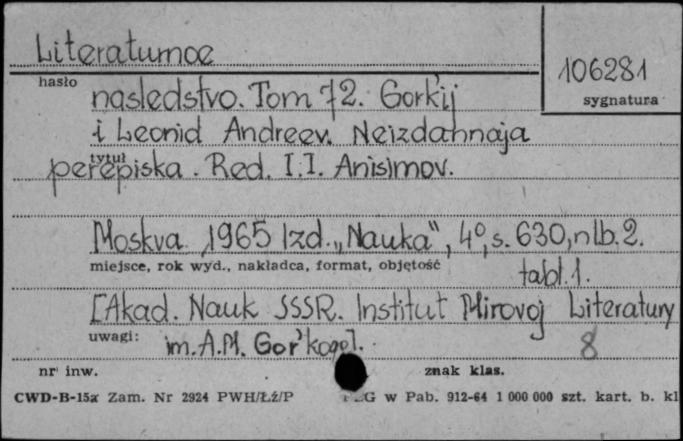 Literaturnoe
hasło
106281
sygnatura
nasledstvo. Tom 72. Gor'kij
i Leonid Andreev. Neizdannaja
tytuł
perepiska. Red. I.I. Anisimov.
Moskva 1965 Izd. „Nauka", 4°, s. 630, nlb. 2.
miejsce, rok wyd., nakładca, format, objętość
tabl. 1.
[Akad. Nauk SSSR. Institut Mirovoj Literatury
uwagi:
im. A.M. Gor'kogo].
8
nr inw.
znak klas.
CWD-B-15a Zam. Nr 2924 PWH/Łź/P
G w Pab. 912-64 1 000 000 szt. kart. b. kl